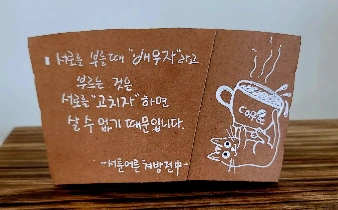 서로를 부를 때 "배우자"라고
부르는 것은
서로를 "고치자" 하면
살 수 없기 때문입니다.
-서툰어른 처방전 中-
coffee